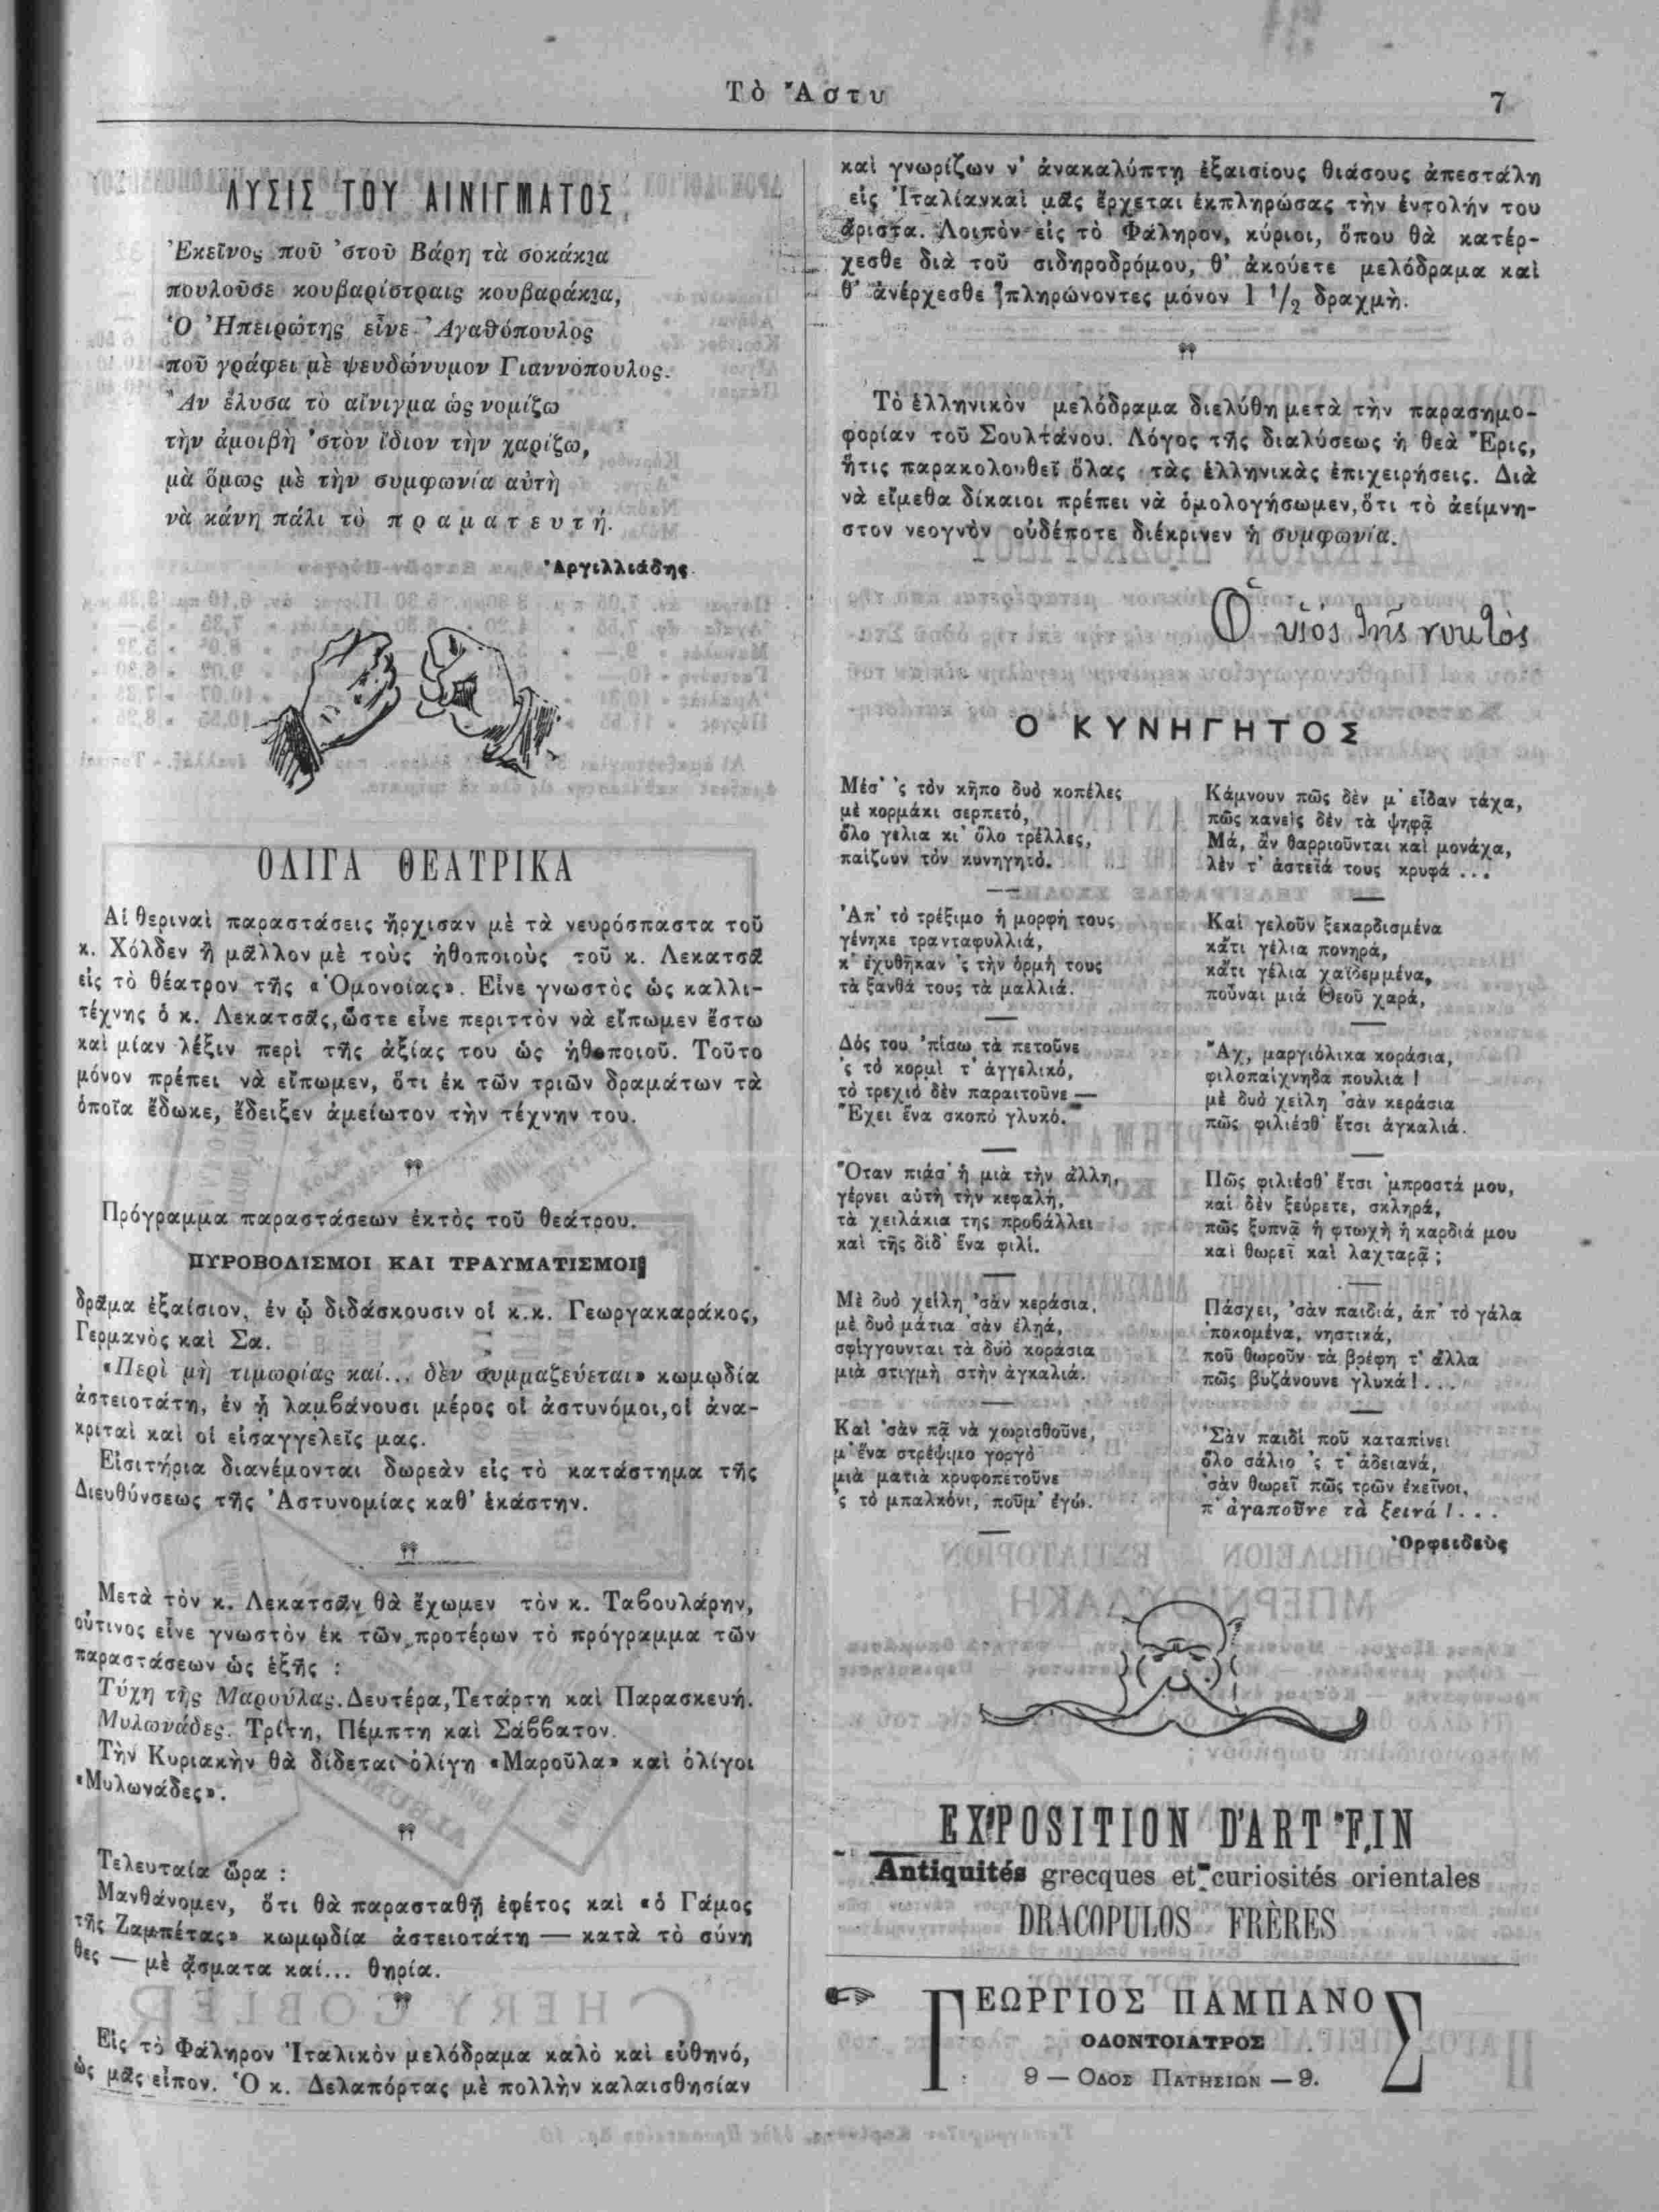 Τὸ Ἄστυ
7
ΛΥΣΙΣ ΤΟΥ ΑΙΝΙΓΜΑΤΟΣ
Ἐκεῖνος ποῦ ’στοῦ Βάρη τὰ σοκάκια
πουλοῦσε κουβαρίστραις κουβαράκια,
Ὁ Ἠπειρώτης εἶνε Ἀγαθόπουλος
ποῦ γράφει μὲ ψευδώνυμον Γιαννόπουλος.
Ἂν ἔλυσα τὸ αἴνιγμα ὡς νομίζω
τὴν ἀμοιβὴ ’στὸν ἴδιον τὴν χαρίζω,
μὰ ὅμως μὲ τὴν συμφωνία αὐτὴ
νὰ κάνῃ πάλι τὸ πραματευτή.
Ἀργιλλιάδης.
ΟΛΙΓΑ ΘΕΑΤΡΙΚΑ
Αἱ θεριναὶ παραστάσεις ἤρχισαν μὲ τὰ νευρόσπαστα τοῦ
κ. Χόλδεν ἢ μᾶλλον μὲ τοὺς ἠθοποιοὺς τοῦ κ. Λεκατσᾶ
εἰς τὸ θέατρον τῆς «Ὁμονοίας». Εἶνε γνωστὸς ὡς καλλι-
τέχνης ὁ κ. Λεκατσᾶς, ὥστε εἶνε περιττὸν νὰ εἴπωμεν ἔστω
καὶ μίαν λέξιν περὶ τῆς ἀξίας του ὡς ἠθοποιοῦ. Τοῦτο
μόνον πρέπει νὰ εἴπωμεν, ὅτι ἐκ τῶν τριῶν δραμάτων τὰ
ὁποῖα ἔδωκε, ἔδειξεν ἀμείωτον τὴν τέχνην του.
Πρόγραμμα παραστάσεων ἐκτὸς τοῦ θεάτρου.
ΠΥΡΟΒΟΛΙΣΜΟΙ ΚΑΙ ΤΡΑΥΜΑΤΙΣΜΟΙ
δρᾶμα ἐξαίσιον, ἐν ᾧ διδάσκουσιν οἱ κ.κ. Γεωργακαράκος,
Γερμανὸς καὶ Σα.
«Περὶ μὴ τιμωρίας καί... δὲν συμμαζεύεται» κωμῳδία
ἀστειοτάτη, ἐν ᾗ λαμβάνουσι μέρος οἱ ἀστυνόμοι, οἱ ἀνα-
κριταὶ καὶ οἱ εἰσαγγελεῖς μας.
Εἰσιτήρια διανέμονται δωρεὰν εἰς τὸ κατάστημα τῆς
Διευθύνσεως τῆς Ἀστυνομίας καθ’ ἑκάστην.
Μετὰ τὸν κ. Λεκατσᾶν θὰ ἔχωμεν τὸν κ. Ταβουλάρην,
οὗτινος εἶνε γνωστὸν ἐκ τῶν προτέρων τὸ πρόγραμμα τῶν
παραστάσεων ὡς ἑξῆς :
Τύχη τῆς Μαρούλας. Δευτέρα, Τετάρτη καὶ Παρασκευή.
Μυλωνάδες. Τρίτη, Πέμπτη καὶ Σάββατον.
Τὴν Κυριακὴν θὰ δίδεται ὀλίγη «Μαροῦλα» καὶ ὀλίγοι
«Μυλωνάδες».
Τελευταία ὥρα :
Μανθάνομεν, ὅτι θὰ παρασταθῇ ἐφέτος καὶ «ὁ Γάμος
τῆς Ζαμπέτας» κωμῳδία ἀστειοτάτη — κατὰ τὸ σύνη
θες — μὲ ᾄσματα καί... θηρία.
Εἰς τὸ Φάληρον Ἰταλικὸν μελόδραμα καλὸ καὶ εὐθηνό,
ὡς μᾶς εἶπον. Ὁ κ. Δελαπόρτας μὲ πολλὴν καλαισθησίαν
καὶ γνωρίζων ν’ ἀνακαλύπτῃ ἐξαισίους θιάσους ἀπεστάλη
εἰς Ἰταλίαν καὶ μᾶς ἔρχεται ἐκπληρώσας τὴν ἐντολήν του
ἄριστα. Λοιπὸν εἰς τὸ Φάληρον, κύριοι, ὅπου θὰ κατέρ-
χεσθε διὰ τοῦ σιδηροδρόμου, θ’ ἀκούετε μελόδραμα καὶ
θ’ ἀνέρχεσθε πληρώνοντες μόνον 1 1/2 δραχμὴ.
Τὸ ἑλληνικὸν μελόδραμα διελύθη μετὰ τὴν παρασημο-
φορίαν τοῦ Σουλτάνου. Λόγος τῆς διαλύσεως ἡ θεὰ Ἔρις,
ἥτις παρακολουθεῖ ὅλας τὰς ἑλληνικὰς ἐπιχειρήσεις. Διὰ
νὰ εἴμεθα δίκαιοι πρέπει νὰ ὁμολογήσωμεν, ὅτι τὸ ἀείμνη-
στον νεογνὸν οὐδέποτε διέκρινεν ἡ συμφωνία.
Ὁ υἱός τῆς νυκτὸς
Ο ΚΥΝΗΓΗΤΟΣ
Μέσ’ ’ς τὸν κῆπο δυὸ κοπέλες
μὲ κορμάκι σερπετό,
ὅλο γέλια κι’ ὅλο τρέλλες,
παίζουν τὸν κυνηγητό.
Ἀπ’ τὸ τρέξιμο ἡ μορφή τους
γένηκε τρανταφυλλιά,
κ’ ἐχυθῆκαν ’ς τὴν ὁρμή τους
τὰ ξανθά τους τὰ μαλλιά.
Δός του ’πίσω τὰ πετοῦνε
’ς τὸ κορμὶ τ’ ἀγγελικό,
τὸ τρεχιὸ δὲν παραιτοῦνε —
Ἔχει ἕνα σκοπὸ γλυκό.
Ὅταν πιάσ’ ἡ μιὰ τὴν ἄλλη,
γέρνει αὐτὴ τὴν κεφαλή,
τὰ χειλάκια της προβάλλει
καὶ τῆς δίδ’ ἕνα φιλί.
Μὲ δυὸ χείλη ’σὰν κεράσια,
μὲ δυὸ μάτια ’σὰν ἐλῃά,
σφίγγουνται τὰ δυὸ κοράσια
μιὰ στιγμὴ στὴν ἀγκαλιά.
Καὶ ’σὰν πᾶ νὰ χωρισθοῦνε,
μ’ ἕνα στρέψιμο γοργὸ
μιὰ ματιὰ κρυφοπετοῦνε
’ς τὸ μπαλκόνι, ποῦμ’ ἐγώ.
Κάμνουν πῶς δὲν μ’ εἶδαν τάχα,
πῶς κανεὶς δὲν τὰ ψηφᾷ
Μά, ἂν θαρριοῦνται καὶ μονάχα,
λὲν τ’ ἀστεῖά τους κρυφά ...
Καὶ γελοῦν ξεκαρδισμένα
κάτι γέλια πονηρά,
κάτι γέλια χαϊδεμμένα,
ποὖναι μιὰ Θεοῦ χαρά,
Ἄχ, μαργιόλικα κοράσια,
φιλοπαίχνηδα πουλιά !
μὲ δυὸ χείλη ’σὰν κεράσια
πῶς φιλιέσθ’ ἔτσι ἀγκαλιά.
Πῶς φιλιέσθ’ ἔτσι ’μπροστά μου,
καὶ δὲν ξεύρετε, σκληρά,
πῶς ξυπνᾷ ἡ φτωχὴ ἡ καρδιά μου
καὶ θωρεῖ καὶ λαχταρᾷ ;
Πάσχει, ’σὰν παιδιά, ἀπ’ τὸ γάλα
’ποκομένα, νηστικά,
ποῦ θωροῦν τὰ βρέφη τ’ ἄλλα
πῶς βυζάνουνε γλυκά !...
Ἐσὰν παιδὶ ποῦ καταπίνει
ὅλο σάλιο ’ς τ’ ἀδειανά,
’σὰν θωρεῖ πῶς τρῶν ἐκεῖνοι,
π’ ἀγαποῦνε τὰ ξεινά !...
Ὀρφειδεὺς
EXPOSITION D'ART FIN
Antiquités grecques et curiosités orientales
DRACOPULOS FRÈRES
ΓΕΩΡΓΙΟΣ ΠΑΜΠΑΝΟΣ
ΟΔΟΝΤΟΙΑΤΡΟΣ
9 — ΟΔΟΣ ΠΑΤΗΣΙΩΝ — 9.